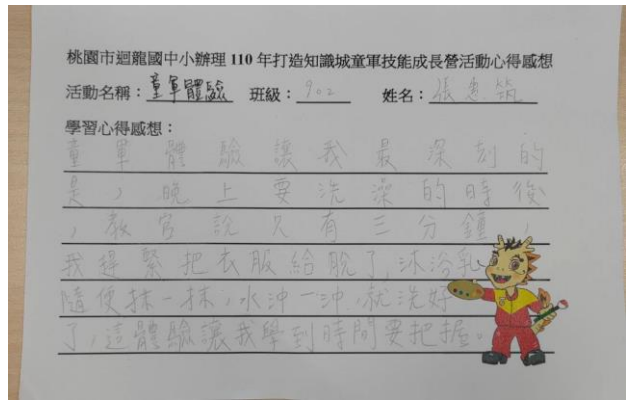 桃園市迴龍國中小辦理 110 年打造知識城童軍技能成長營活動心得感想
活動名稱：童軍體驗 班級：902 姓名：張惠筑
學習心得感想：
童軍體驗讓我最深刻的
是，晚上要洗澡的時後
，教官說只有三分鐘，
我趕緊把衣服給脫了，沐浴乳
隨便抹一抹，水沖一沖，就洗好
了，這體驗讓我學到時間要把握。